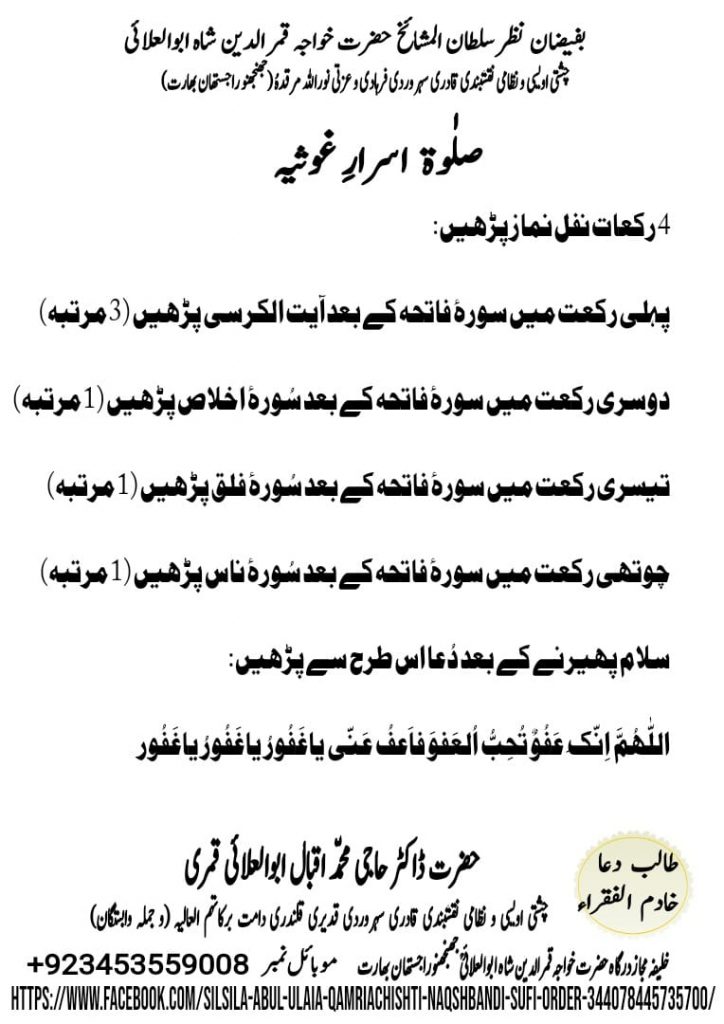 بفیضان نظر سلطان المشائخ حضرت خواجہ قمر الدین شاہ ابوالعلائی
چشتی اویسی و نظامی نقشبندی قادری سہروردی فرہادی و عزتی نور اللہ مرقدہٗ (جھنجھنو راجستھان بھارت)
صلوٰۃ اسرارِ غوثیہ
4 رکعات نفل نماز پڑھیں:
پہلی رکعت میں سورۂ فاتحہ کے بعد آیت الکرسی پڑھیں (3 مرتبہ)
دوسری رکعت میں سورۂ فاتحہ کے بعد سُورۂ اخلاص پڑھیں (1 مرتبہ)
تیسری رکعت میں سورۂ فاتحہ کے بعد سُورۂ فلق پڑھیں (1 مرتبہ)
چوتھی رکعت میں سورۂ فاتحہ کے بعد سُورۂ ناس پڑھیں (1 مرتبہ)
سلام پھیرنے کے بعد دُعا اس طرح سے پڑھیں:
اللّٰھُمَّ اِنّکَ عَفُوٌ تُحِبُّ اُلعَفوَ فاَعفُ عَنّی یاغَفُورُ یاغَفُورُ یاغَفُور
طالب دعا
خادم الفقراء
حضرت ڈاکٹر حاجی محمّد اقبال ابوالعلائی قمری
چشتی اویسی و نظامی نقشبندی قادری سہروردی قدیری قلندری دامت برکاتہم العالیہ (و جملہ وابستگان)
خلیفہ مجاز درگاہ حضرت خواجہ قمر الدین شاہ ابوالعلائیؒ جھنجھنو راجستھان بھارت موبائل نمبر +923453559008
HTTPS://WWW.FACEBOOK.COM/SILSILA-ABUL-ULAIA-QAMRIACHISHTI-NAQSHBANDI-SUFI-ORDER-344078445735700/